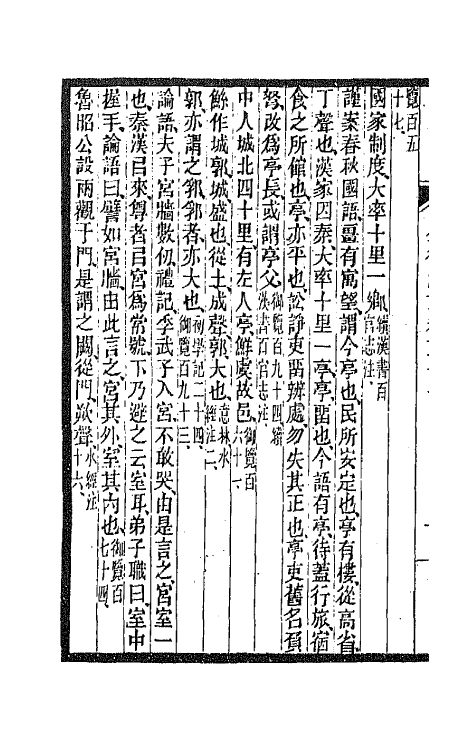 覽百五十七、
國家制度大率十里一鄉、續漢書百官志注、
謹案春秋國語畺有寓望謂今亭也民所安定也亭有樓從高省
丁聲也漢家因秦大率十里一亭亭畱也今語有亭待蓋行旅宿
食之所館也亭亦平也訟諍吏畱辨處勿失其正也亭吏舊名負
弩改爲亭長或謂亭父御覽百九十四續漢書百官志注、
中人城北四十里有左人亭鮮虞故邑、御覽百六十一、
鯀作城郭城盛也從土成聲郭大也、意林水經注二、
郭亦謂之郛郛者亦大也、初學記二十四御覽百九十三、
論語夫子宮牆數仞禮記季武子入宮不敢哭由是言之宮室一
也秦漢㠯來尊者㠯宮爲常號下乃避之云室耳弟子職曰室中
握手論語曰譬如宮牆由此言之宮其外室其內也、御覽百七十四、
魯昭公設兩觀于門是謂之闕從門欮聲、水經注十六、